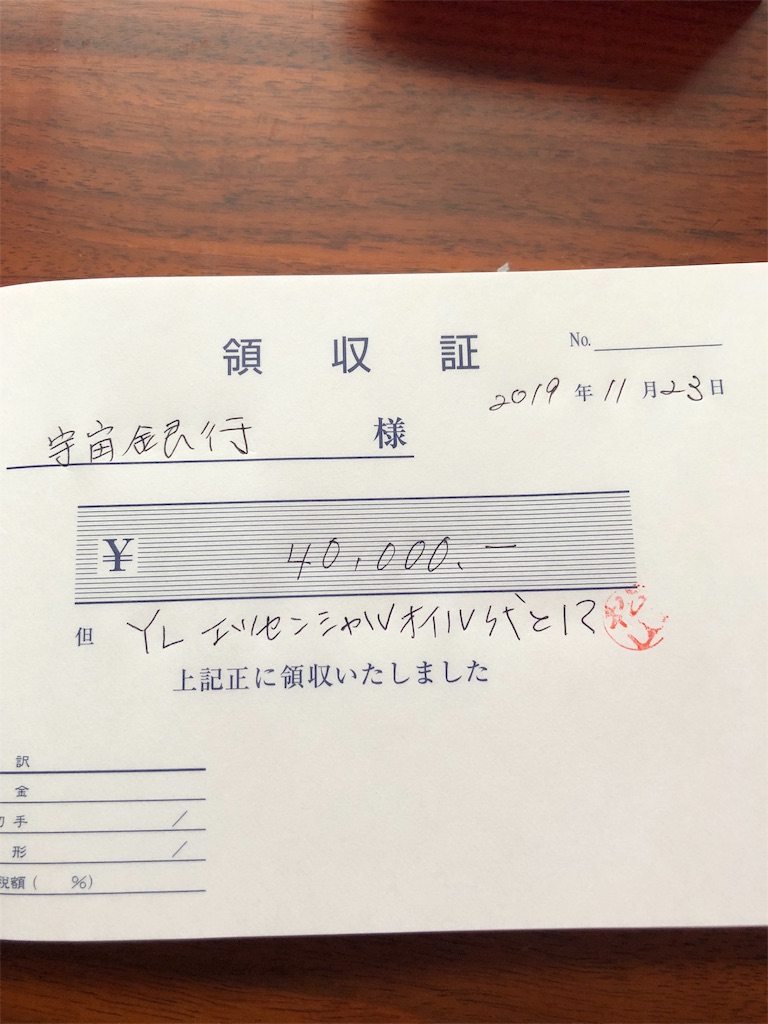 領 収 証
No.
2019 年 11 月 23 日
宇宙銀行 様
¥ 40,000.-
但 YL エッセンシャルオイル代として
上記正に領収いたしました
訳
金
手 /
形 /
税額 ( %)